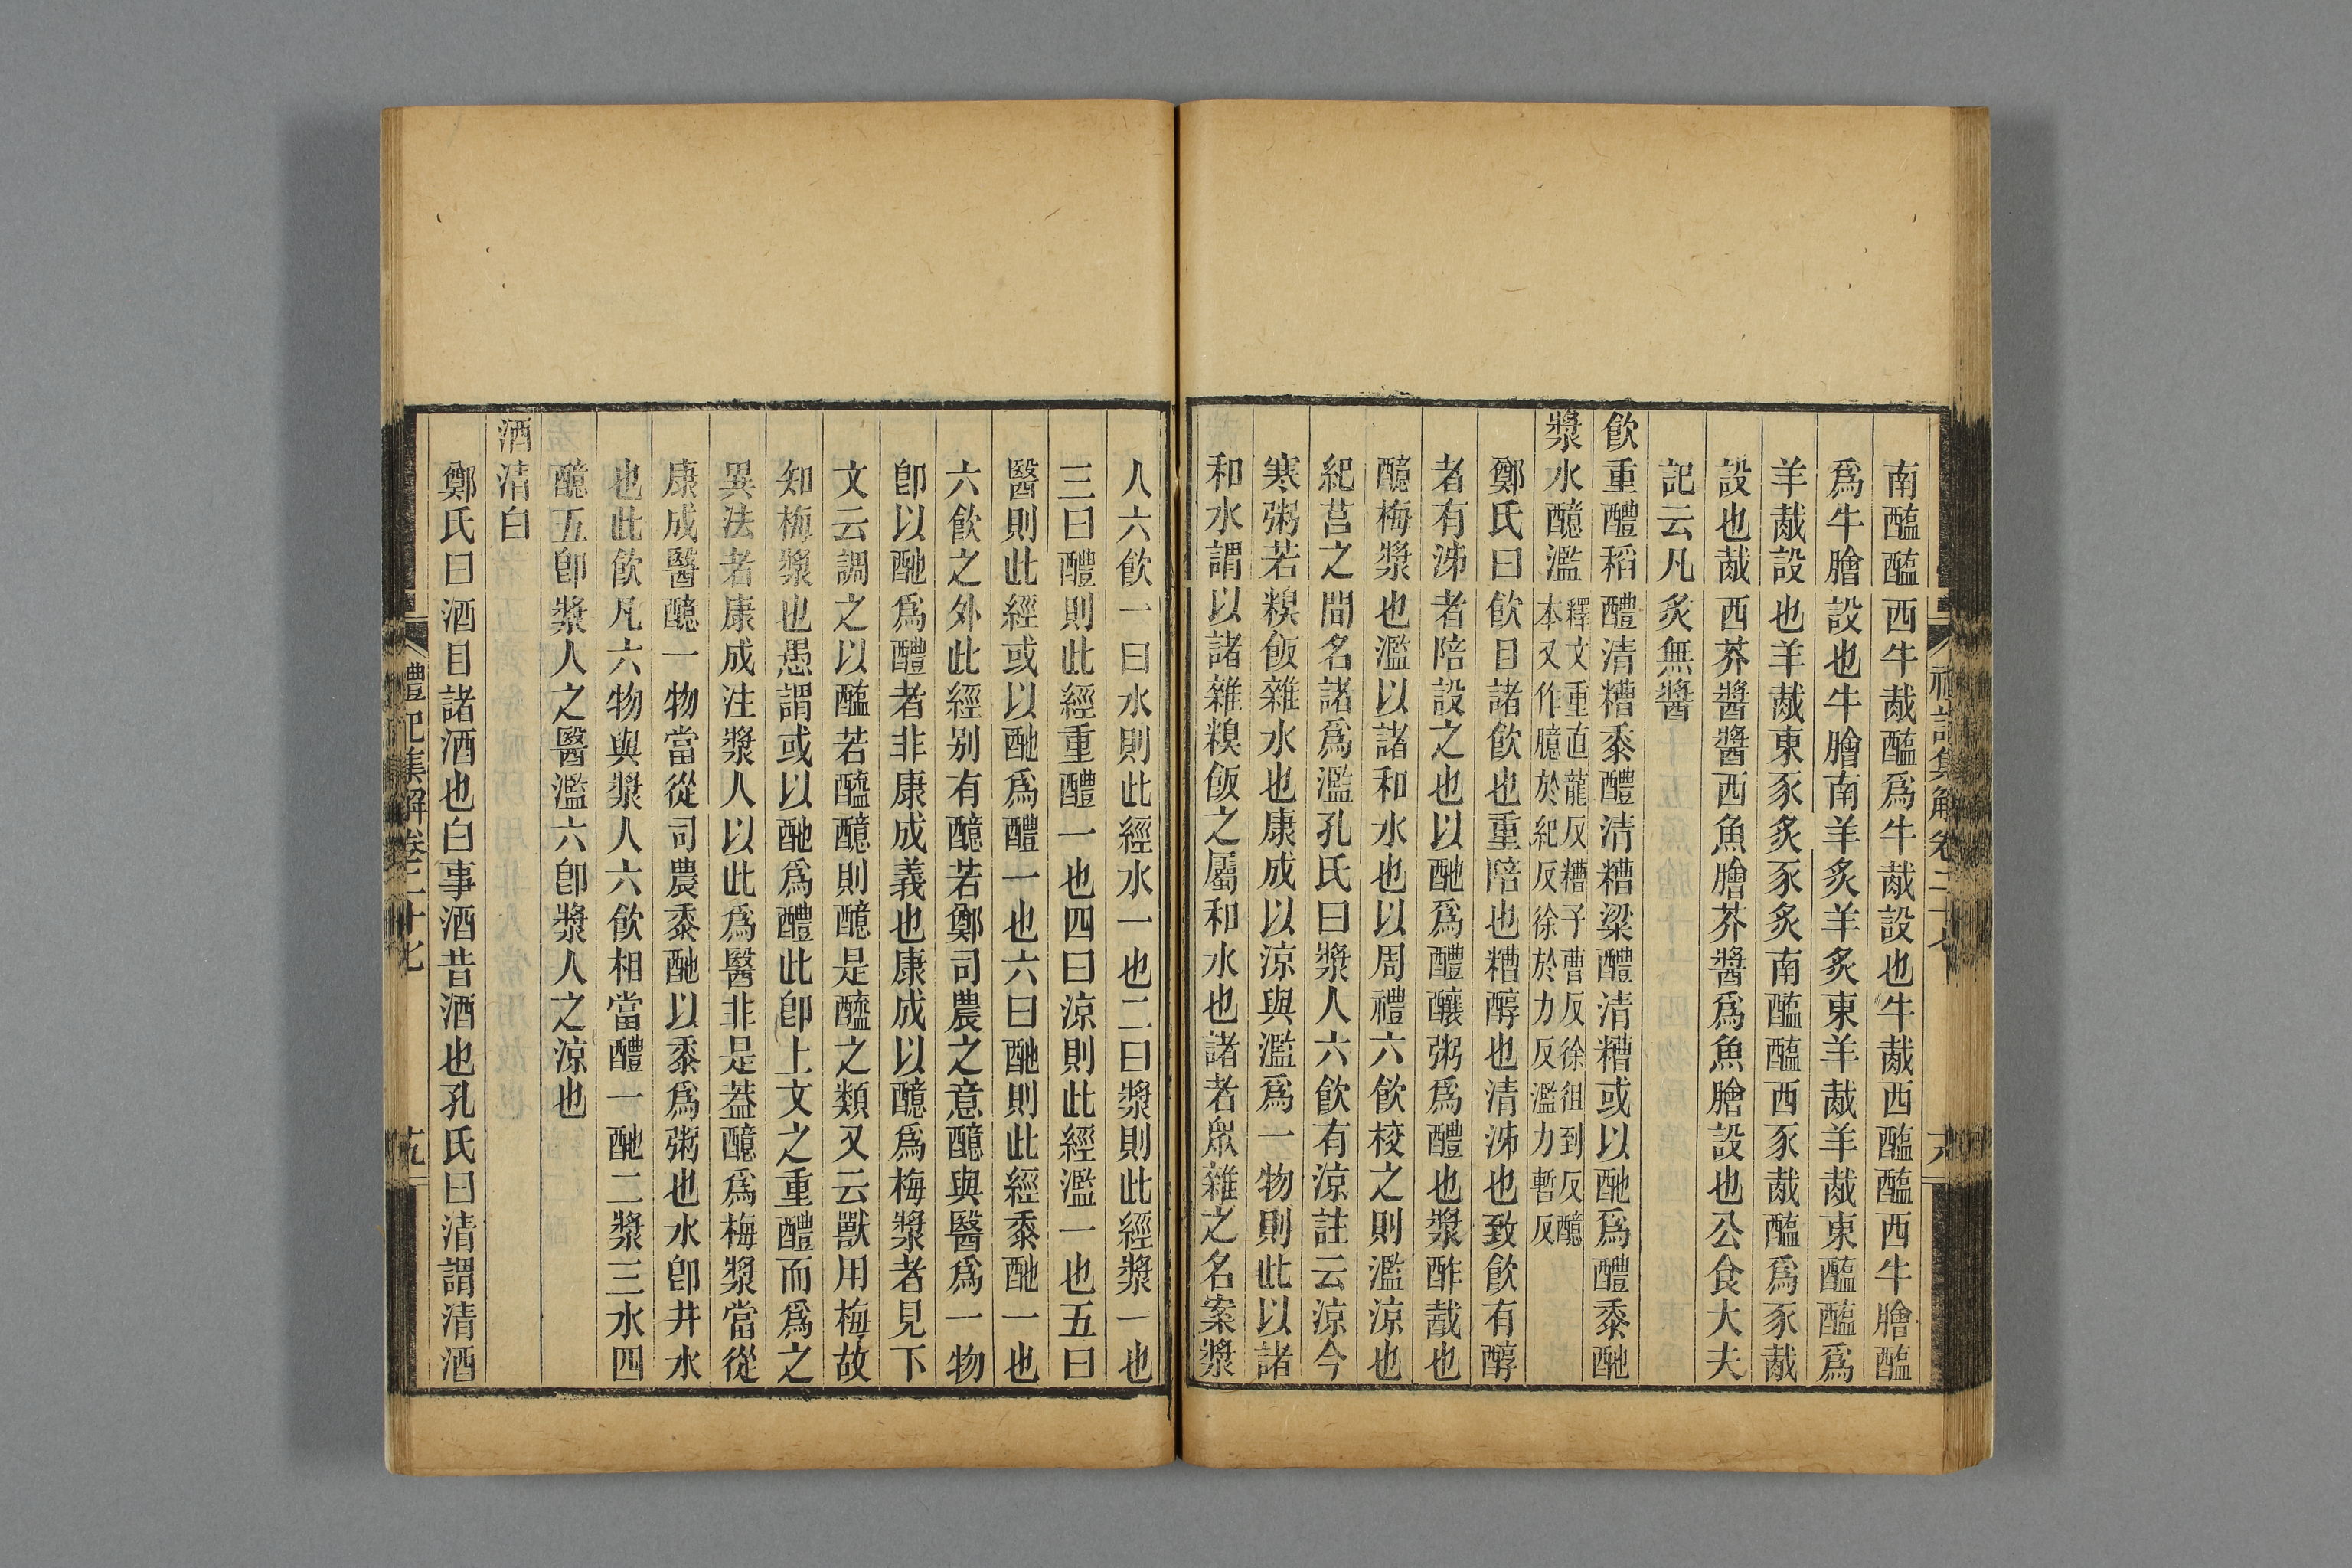 南醢醢西牛胾醢爲牛胾設也牛胾西醢醢西牛膾醢
爲牛膾設也牛膾南羊炙羊炙東羊胾羊胾東醢醢爲
羊胾設也羊胾東豕炙豕炙南醢醢西豕胾醢爲豕胾
設也胾西芥醬醬西魚膾芥醬爲魚膾設也公食大夫
記云凡炙無醬
飮重醴稻醴清糟黍醴清糟粱醴清糟或以酏爲醴黍酏
漿水醷濫釋文重直龍反糟子曹反徐徂到反醷
本又作臆於紀反徐於力反濫力暫反
鄭氏曰飮目諸飮也重陪也糟醇也清泲也致飮有醇
者有泲者陪設之也以酏爲醴釀粥爲醴也漿酢胾也
醷梅漿也濫以諸和水也以周禮六飮校之則濫涼也
紀莒之間名諸爲濫孔氏曰漿人六飮有涼註云涼今
寒粥若糗飯雜水也康成以涼與濫爲一物則此以諸
和水謂以諸雜糗飯之屬和水也諸者眾雜之名案漿
人六飮一曰水則此經水一也二曰漿則此經漿一也
三曰醴則此經重醴一也四曰涼則此經濫一也五曰
醫則此經或以酏爲醴一也六曰酏則此經黍酏一也
六飮之外此經别有醷若鄭司農之意醷與醫爲一物
卽以酏爲醴者非康成義也康成以醷爲梅漿者見下
文云調之以醢若醯醷則醷是醯之類又云獸用梅故
知梅漿也愚謂或以酏爲醴此卽上文之重醴而爲之
異法者康成注漿人以此爲醫非是葢醷爲梅漿當從
康成醫醷一物當從司農黍酏以黍爲粥也水卽井水
也此飮凡六物與漿人六飮相當醴一酏二漿三水四
醷五卽漿人之醫濫六卽漿人之涼也
酒清白
鄭氏曰酒目諸酒也白事酒昔酒也孔氏曰清謂清酒
禮記集解卷二十七